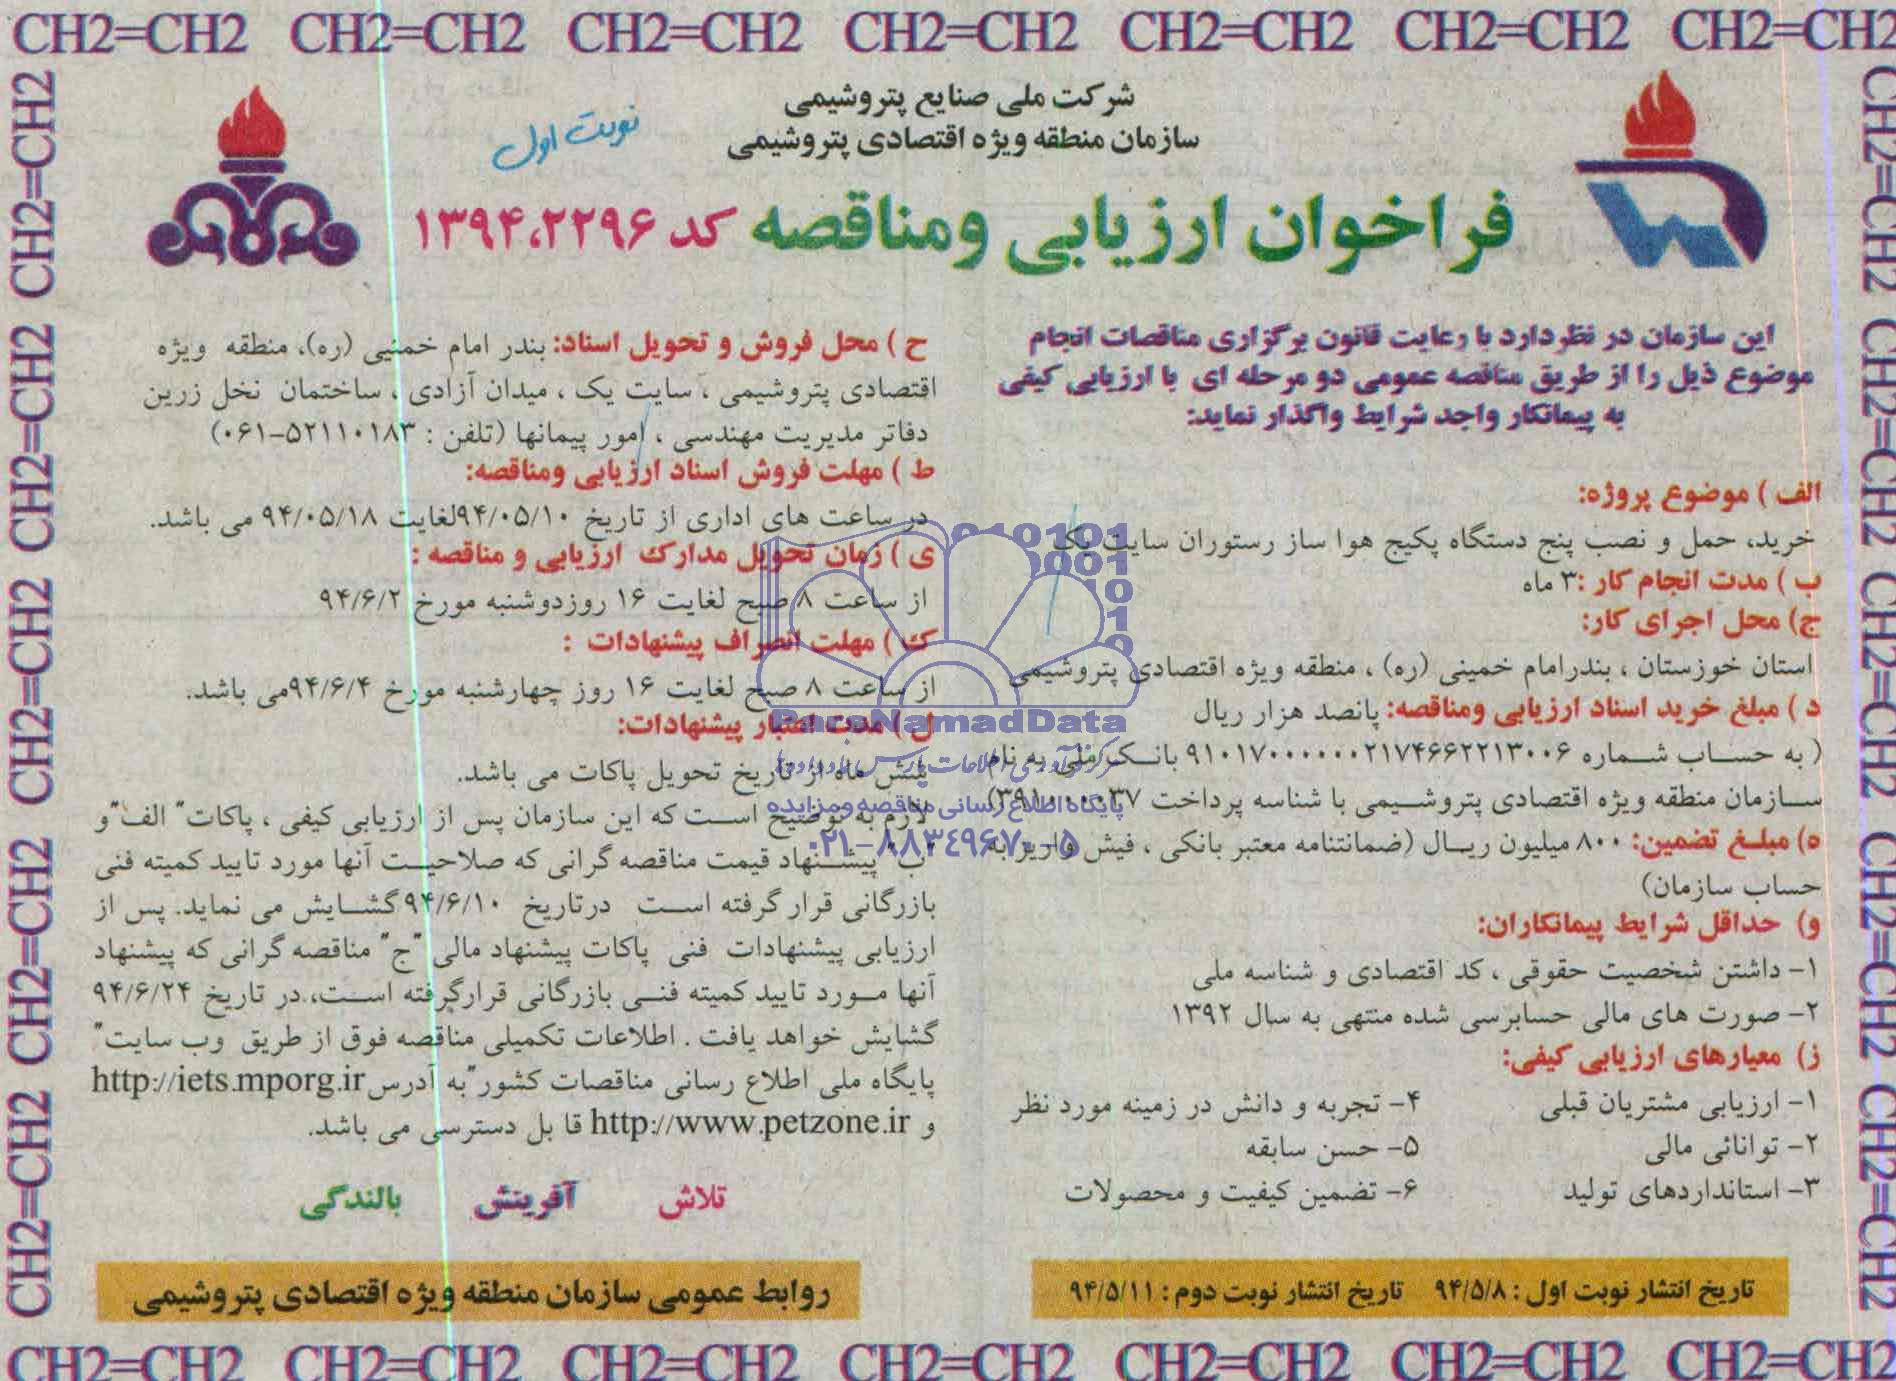 CH2=CH2 CH2=CH2 CH2=CH2 CH2=CH2 CH2=CH2 CH2=CH2 CH2=CH2
شرکت ملی صنایع پتروشیمی
سازمان منطقه ویژه اقتصادی پتروشیمی
نوبت اول
فراخوان ارزیابی ومناقصه کد ۱۳۹۴،۲۲۹۶
این سازمان در نظردارد با رعایت قانون برگزاری مناقصات انجام
موضوع ذیل را از طریق مناقصه عمومی دو مرحله ای با ارزیابی کیفی
به پیمانکار واجد شرایط واگذار نماید:
الف ) موضوع پروژه:
خرید، حمل و نصب پنج دستگاه پکیج هوا ساز رستوران سایت یک
ب ) مدت انجام کار :۳ ماه
ج) محل اجرای کار:
استان خوزستان ، بندرامام خمینی (ره) ، منطقه ویژه اقتصادی پتروشیمی
د ) مبلغ خرید اسناد ارزیابی ومناقصه: پانصد هزار ریال
( به حساب شماره ۹۱۰۱۷۰۰۰۰۰۰۰۲۱۷۴۶۶۲۲۱۳۰۰۶ بانک ملی به نام
سازمان منطقه ویژه اقتصادی پتروشیمی با شناسه پرداخت
ه) مبلغ تضمین: ۸۰۰ میلیون ریال (ضمانتنامه معتبر بانکی ، فیش واریز به
حساب سازمان)
و) حداقل شرایط پیمانکاران:
۱- داشتن شخصیت حقوقی ، کد اقتصادی و شناسه ملی
۲- صورت های مالی حسابرسی شده منتهی به سال ۱۳۹۲
ز) معیارهای ارزیابی کیفی:
۱- ارزیابی مشتریان قبلی
۲- توانائی مالی
۳- استانداردهای تولید
۴- تجربه و دانش در زمینه مورد نظر
۵- حسن سابقه
۶- تضمین کیفیت و محصولات
تاریخ انتشار نوبت اول : ۹۴/۵/۸ تاریخ انتشار نوبت دوم : ۹۴/۵/۱۱
ح ) محل فروش و تحویل اسناد: بندر امام خمینی (ره)، منطقه ویژه
اقتصادی پتروشیمی ، سایت یک ، میدان آزادی ، ساختمان نخل زرین
دفاتر مدیریت مهندسی ، امور پیمانها (تلفن : ۵۲۱۱۰۱۸۳-۰۶۱)
ط ) مهلت فروش اسناد ارزیابی ومناقصه:
در ساعت های اداری از تاریخ ۹۴/۰۵/۱۰لغایت ۹۴/۰۵/۱۸ می باشد.
ی ) زمان تحویل مدارک ارزیابی و مناقصه :
از ساعت ۸ صبح لغایت ۱۶ روزدوشنبه مورخ ۹۴/۶/۲
ک ) مهلت انصراف پیشنهادات :
از ساعت ۸ صبح لغایت ۱۶ روز چهارشنبه مورخ ۹۴/۶/۴می باشد.
ل ) مدت اعتبار پیشنهادات:
شش ماه از تاریخ تحویل پاکات می باشد.
لازم به توضیح است که این سازمان پس از ارزیابی کیفی ، پاکات" الف"و
"ب" پیشنهاد قیمت مناقصه گرانی که صلاحیت آنها مورد تایید کمیته فنی
بازرگانی قرار گرفته است درتاریخ ۹۴/۶/۱۰گشایش می نماید. پس از
ارزیابی پیشنهادات فنی پاکات پیشنهاد مالی "ج" مناقصه گرانی که پیشنهاد
آنها مورد تایید کمیته فنی بازرگانی قرارگرفته است، در تاریخ ۹۴/۶/۲۴
گشایش خواهد یافت . اطلاعات تکمیلی مناقصه فوق از طریق وب سایت"
پایگاه ملی اطلاع رسانی مناقصات کشور"به آدرس http://iets.mporg.ir
و http://www.petzone.ir قا بل دسترسی می باشد.
تلاش آفرینش بالندگی
روابط عمومی سازمان منطقه ویژه اقتصادی پتروشیمی
ParsNamadData
پایگاه اطلاع رسانی مناقصه ومزایده
۰۲۱-۸۸۳۴۹۶۷۰-۵
CH2=CH2 CH2=CH2 CH2=CH2 CH2=CH2 CH2=CH2
CH2=CH2 CH2=CH2 CH2=CH2 CH2=CH2 CH2=CH2
CH2=CH2 CH2=CH2 CH2=CH2 CH2=CH2 CH2=CH2 CH2=CH2 CH2=CH2